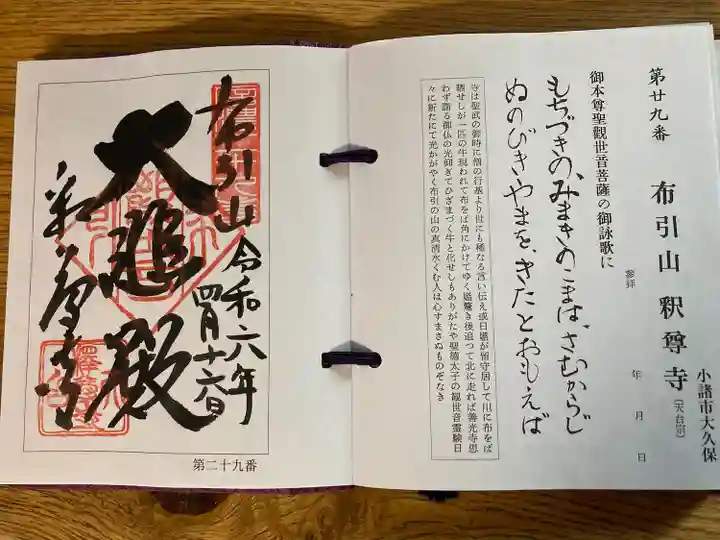 第廿九番 布引山 釈尊寺 (天台宗) 小諸市大久保
参拝 年 月 日
御本尊聖觀世音菩薩の御詠歌に
もちづきの、みまきのこまは、さむからじ
ぬのびきやまを、きたとおもえば
寺は聖武の御時に僧の行基より世にも稀なる言い伝え或日嬶が留守居して川に布をば
晒せしが一匹の牛現われて布をば角にかけてゆく嬶驚き後追って北に走れば善光寺思
わず詣る御仏の光仰ぎてひざまづく牛と化せしもありがたや聖徳太子の観世音霊験日
々に新たにて光かがやく布引の山の真清水くむ人は心すまさぬものぞなき
令和六年
四月十六日
布引山
大悲殿
釈尊寺
第二十九番